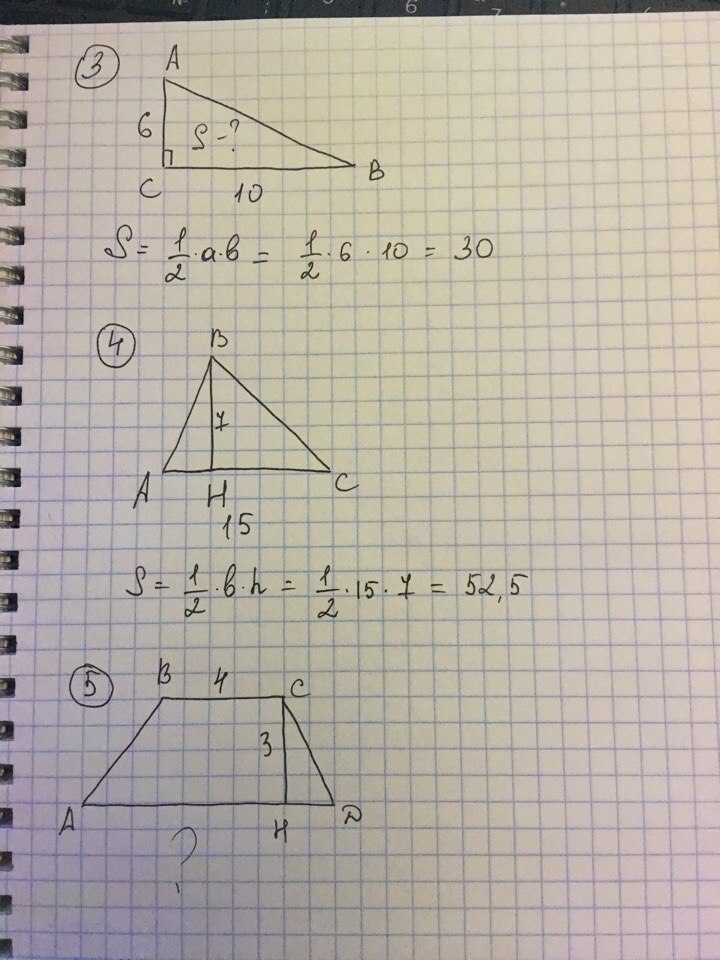 3
A
6
S - ?
C
B
10
S = 1/2 · a · b = 1/2 · 6 · 10 = 30
4
B
7
A
H
C
15
S = 1/2 · b · h = 1/2 · 15 · 7 = 52,5
5
B 4 C
3
A
H
D
?